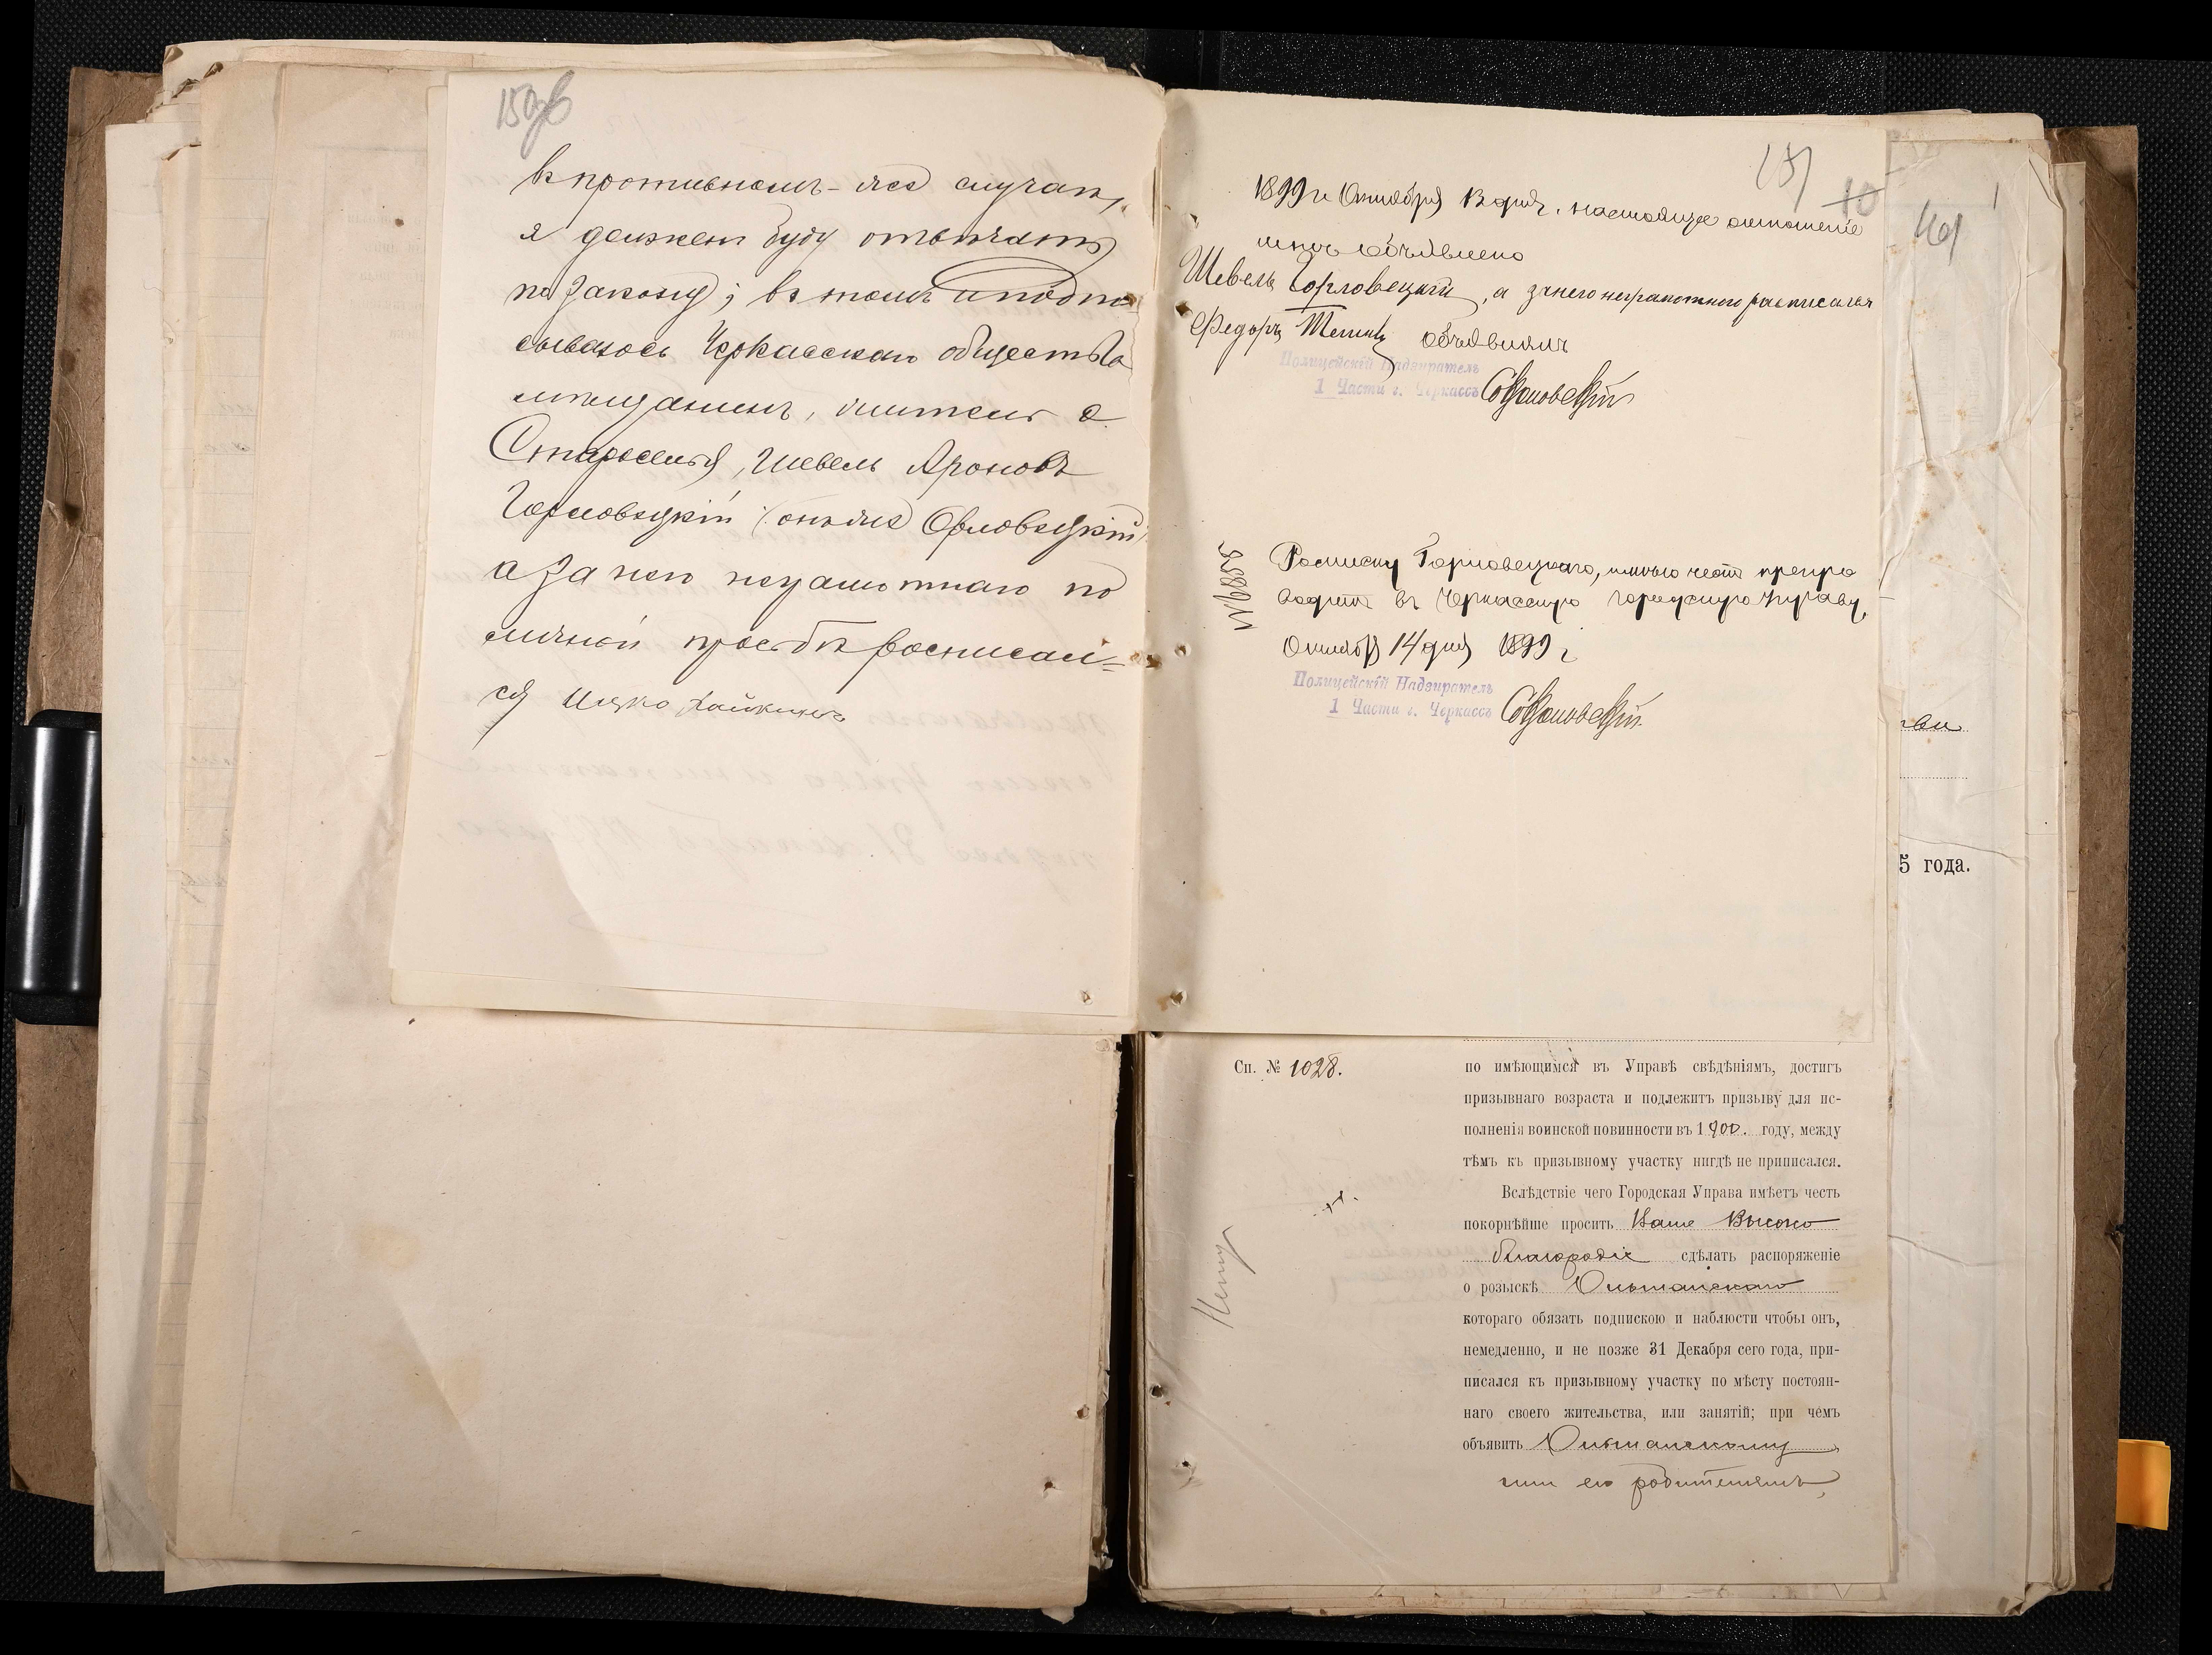 150б
въ противномъ-же случаѣ,
я долженъ буду отвѣчать
по закону; въ томъ и подпи
сываюсь Черкасскаго общества
мещанинъ, житель с.
Староселья, Шевель Ароновъ
Горловецкій (онъ же Орловецкій)
а за него неграмотнаго по
личной просьбѣ росписал=
ся Ицко Хайкинъ
1899 г. Октября 13 дня, настоящее отношеніе
мнѣ объявлено
Шевель Горловецкій, а за него неграмотного расписался
Федоръ объявилъ
Полицейскій Надзиратель
1 Части г. Черкассъ
Росписку Горловецкаго, имѣю честь препро
водить въ Черкасскую Городскую Управу,
Октября 14 дня 1899 г
Полицейскій Надзиратель
1 Части г. Черкассъ
5 года.
Сп. № 1028.
по имѣющимся въ Управѣ свѣдѣніямъ, достигъ
призывнаго возраста и подлежитъ призыву для ис-
полненія воинской повинности въ 1900. году, между
тѣмъ къ призывному участку нигдѣ не приписался.
Вслѣдствіе чего Городская Управа имѣетъ честь
покорнѣйше проситъ Ваше Высоко
благородіе сдѣлать распоряженіе
о розыскѣ Ольшанскаго
котораго обязать подпискою и наблюсти чтобы онъ,
немедленно, и не позже 31 Декабря сего года, при-
писался къ призывному участку по мѣсту постоян-
наго своего жительства, или занятій; при чемъ
объявить Ольшанскому
или его родителямъ,